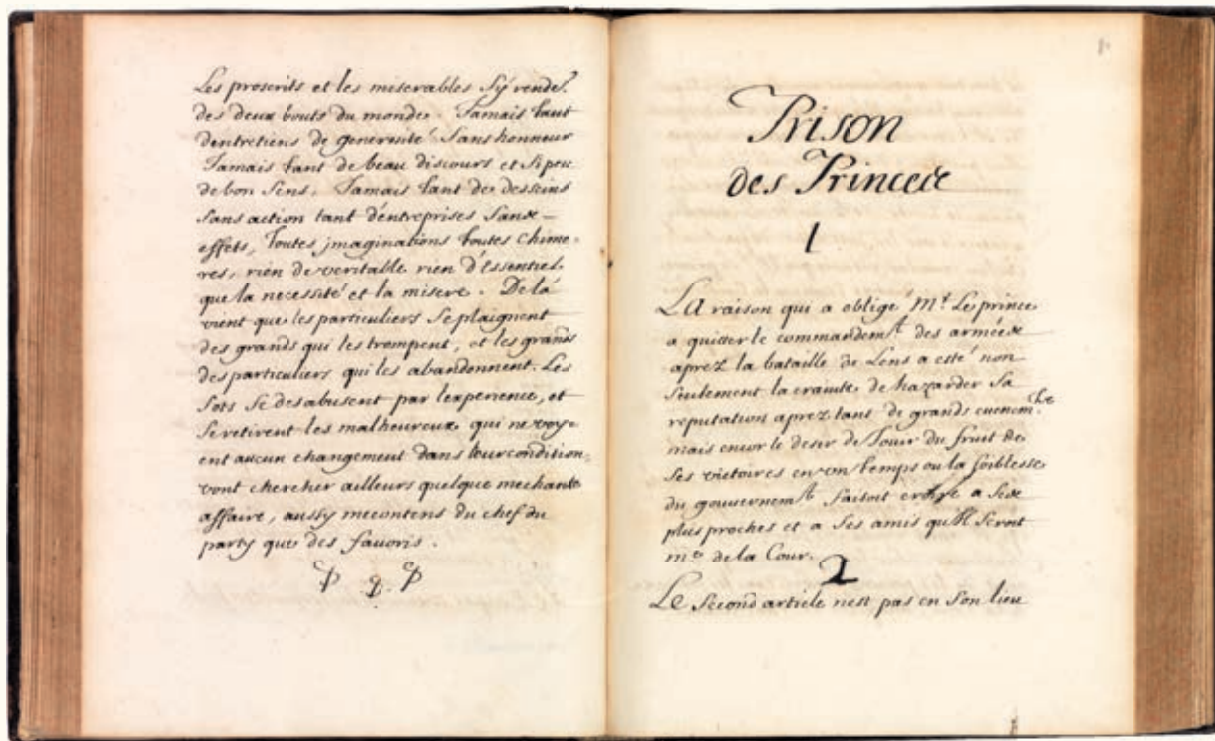 Les proscrits et les miserables s'y rendēt
des deux bouts du monde. Jamais tant
dentretiens de generosité sans honneur
Jamais tant de beau discours et si peu
de bon sens. Jamais tant de desseins
sans action tant d'entreprises sans
effets, toutes jmaginations toutes chime-
res, rien de veritable rien d'essentiel
que la necessité et la misere. De là
vient que les particuliers se plaignent
des grands qui les trompent, et les grands
des particuliers qui les abandonnent. Les
sots se desabusent par lexperience, et
se retirent les malheureux qui ne voy-
ent aucun changement dans leur condition
vont chercher ailleurs quelque mechante
affaire, aussy mecontens du chef du
party que des favoris.
Prison
des Princes
1
La raison qui a obligé Mr. Le prince
a quitter le commandemt. des armées
aprez la bataille de Lens a esté non
seulement la crainte de hazarder sa
reputation aprez tans de grands evenem.
mais encor le desir de Jouir du fruit de
ses victoires en vn temps ou la foiblesse
du gouvernemt faisoit croire a ses
plus proches et a ses amis qu'il seroit
me de la Cour.
2
Le second article nest pas en son lieu